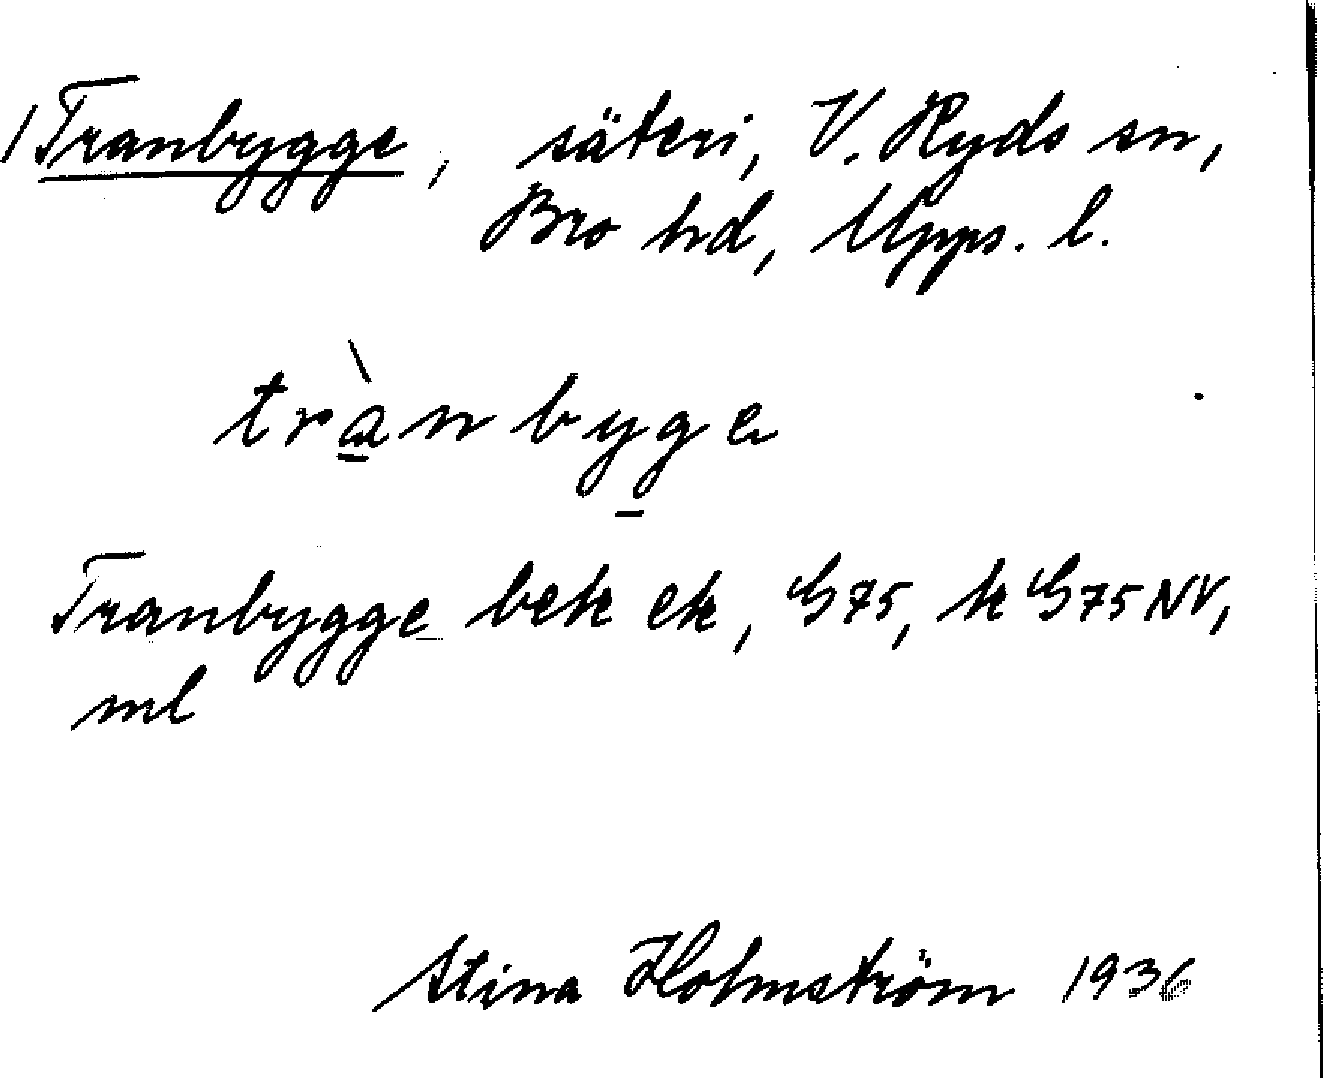 /Tranbygge, säteri, V. Ryds sn,
Bro hd, Upps. l.
trànbyge
Tranbygge bek ek, G75, k G75 NV,
ml
Stina Holmström 1936